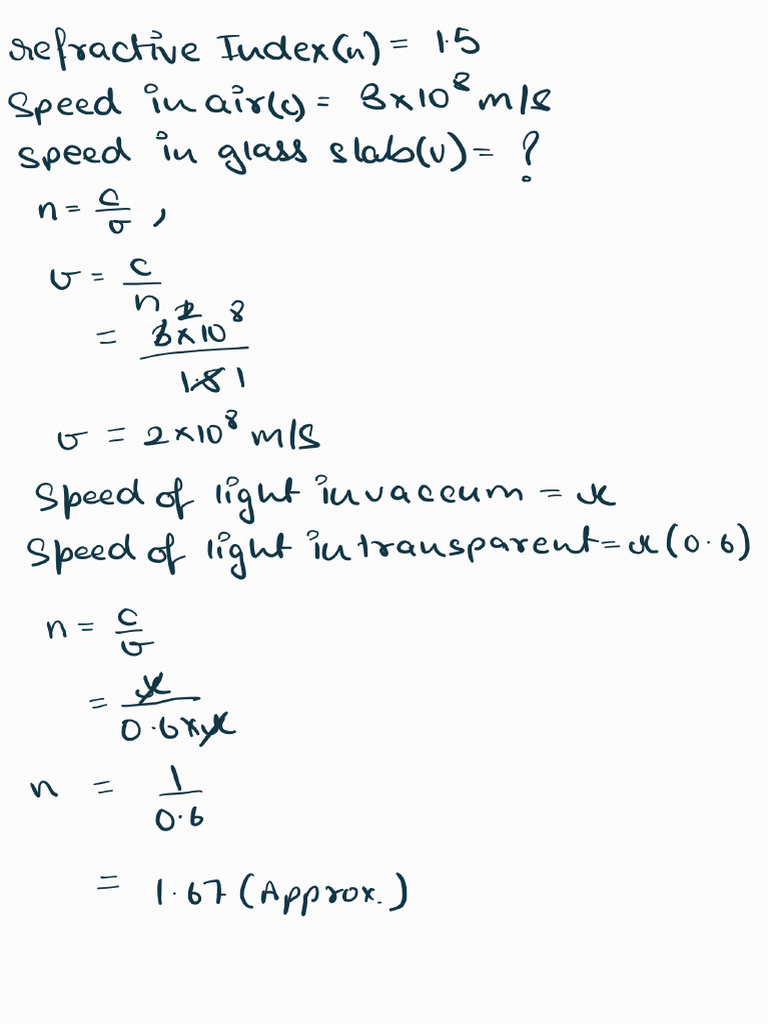 refractive Index(n) = 1.5
Speed in air(c) = 3×10⁸ m/s
speed in glass slab(v) = ?
n = c/v ,
v = c/n
= 3×10⁸ / 1.5 2 1
v = 2×10⁸ m/s
Speed of light in vaccum = x
Speed of light in transparent = x(0.6)
n = c/v
= x / 0.6×x
n = 1/0.6
= 1.67 (Approx.)